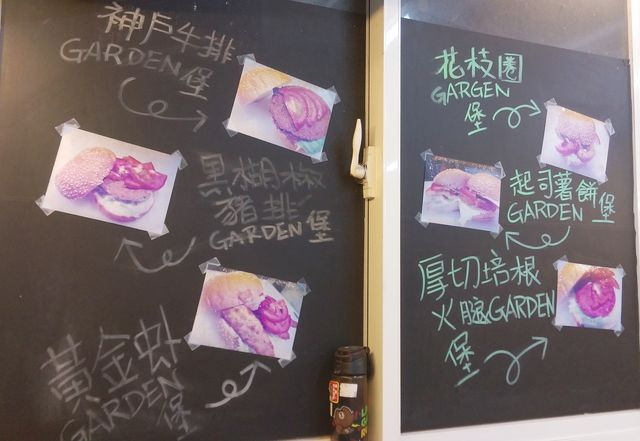 神戶牛排
GARDEN堡
黑糊椒
豬排
GARDEN堡
黃金虾
GARDEN堡
花枝圈
GARGEN
堡
起司薯餅
GARDEN堡
厚切培根
火腿GARDEN
堡